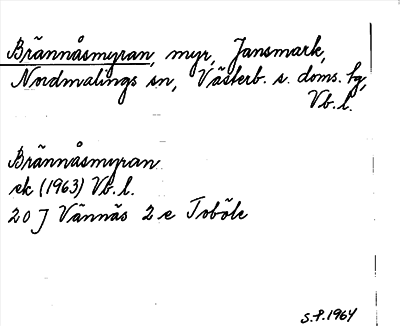 Brännåsmyran, myr, Jansmark,
Nordmalings sn, Västerb. s. doms. fg,
Vb. l.
Brännåsmyran
ek (1963) Vb. l.
20 J Vännäs 2 e Toböle
S.P. 1964